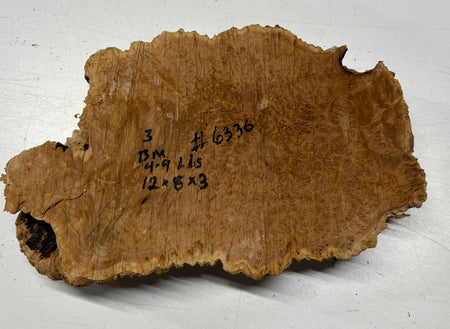 3 # 6336
BM
4-9 LBS
12 x 8 x 3